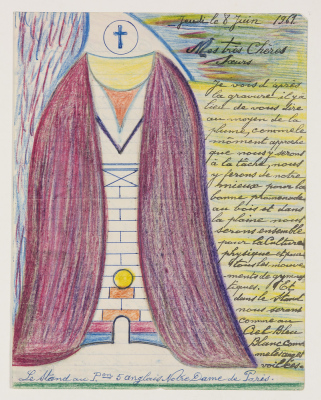 Jeudi le 8 Juin 1961
Mes très Chères
Sœurs
Je vois d'après
la gravure il y a
lieu de vous dire
au moyen de la
plume, comme le
moment apporte
que nous y serons
à la tâche, nous
y ferons de notre
mieux pour la
bonne promenade
au bois et dans
la plaine nous
serons ensemble
pour la Culture
physique et pour
tous les mouve
ments de gymnas
tiques. Et
dans le Stand
nous serons
comme au
Ciel Bleu
Blanc comme
mes anges
voilées.
Le Stand au Pᵒⁿ 5 anglais Notre Dame de Paris.